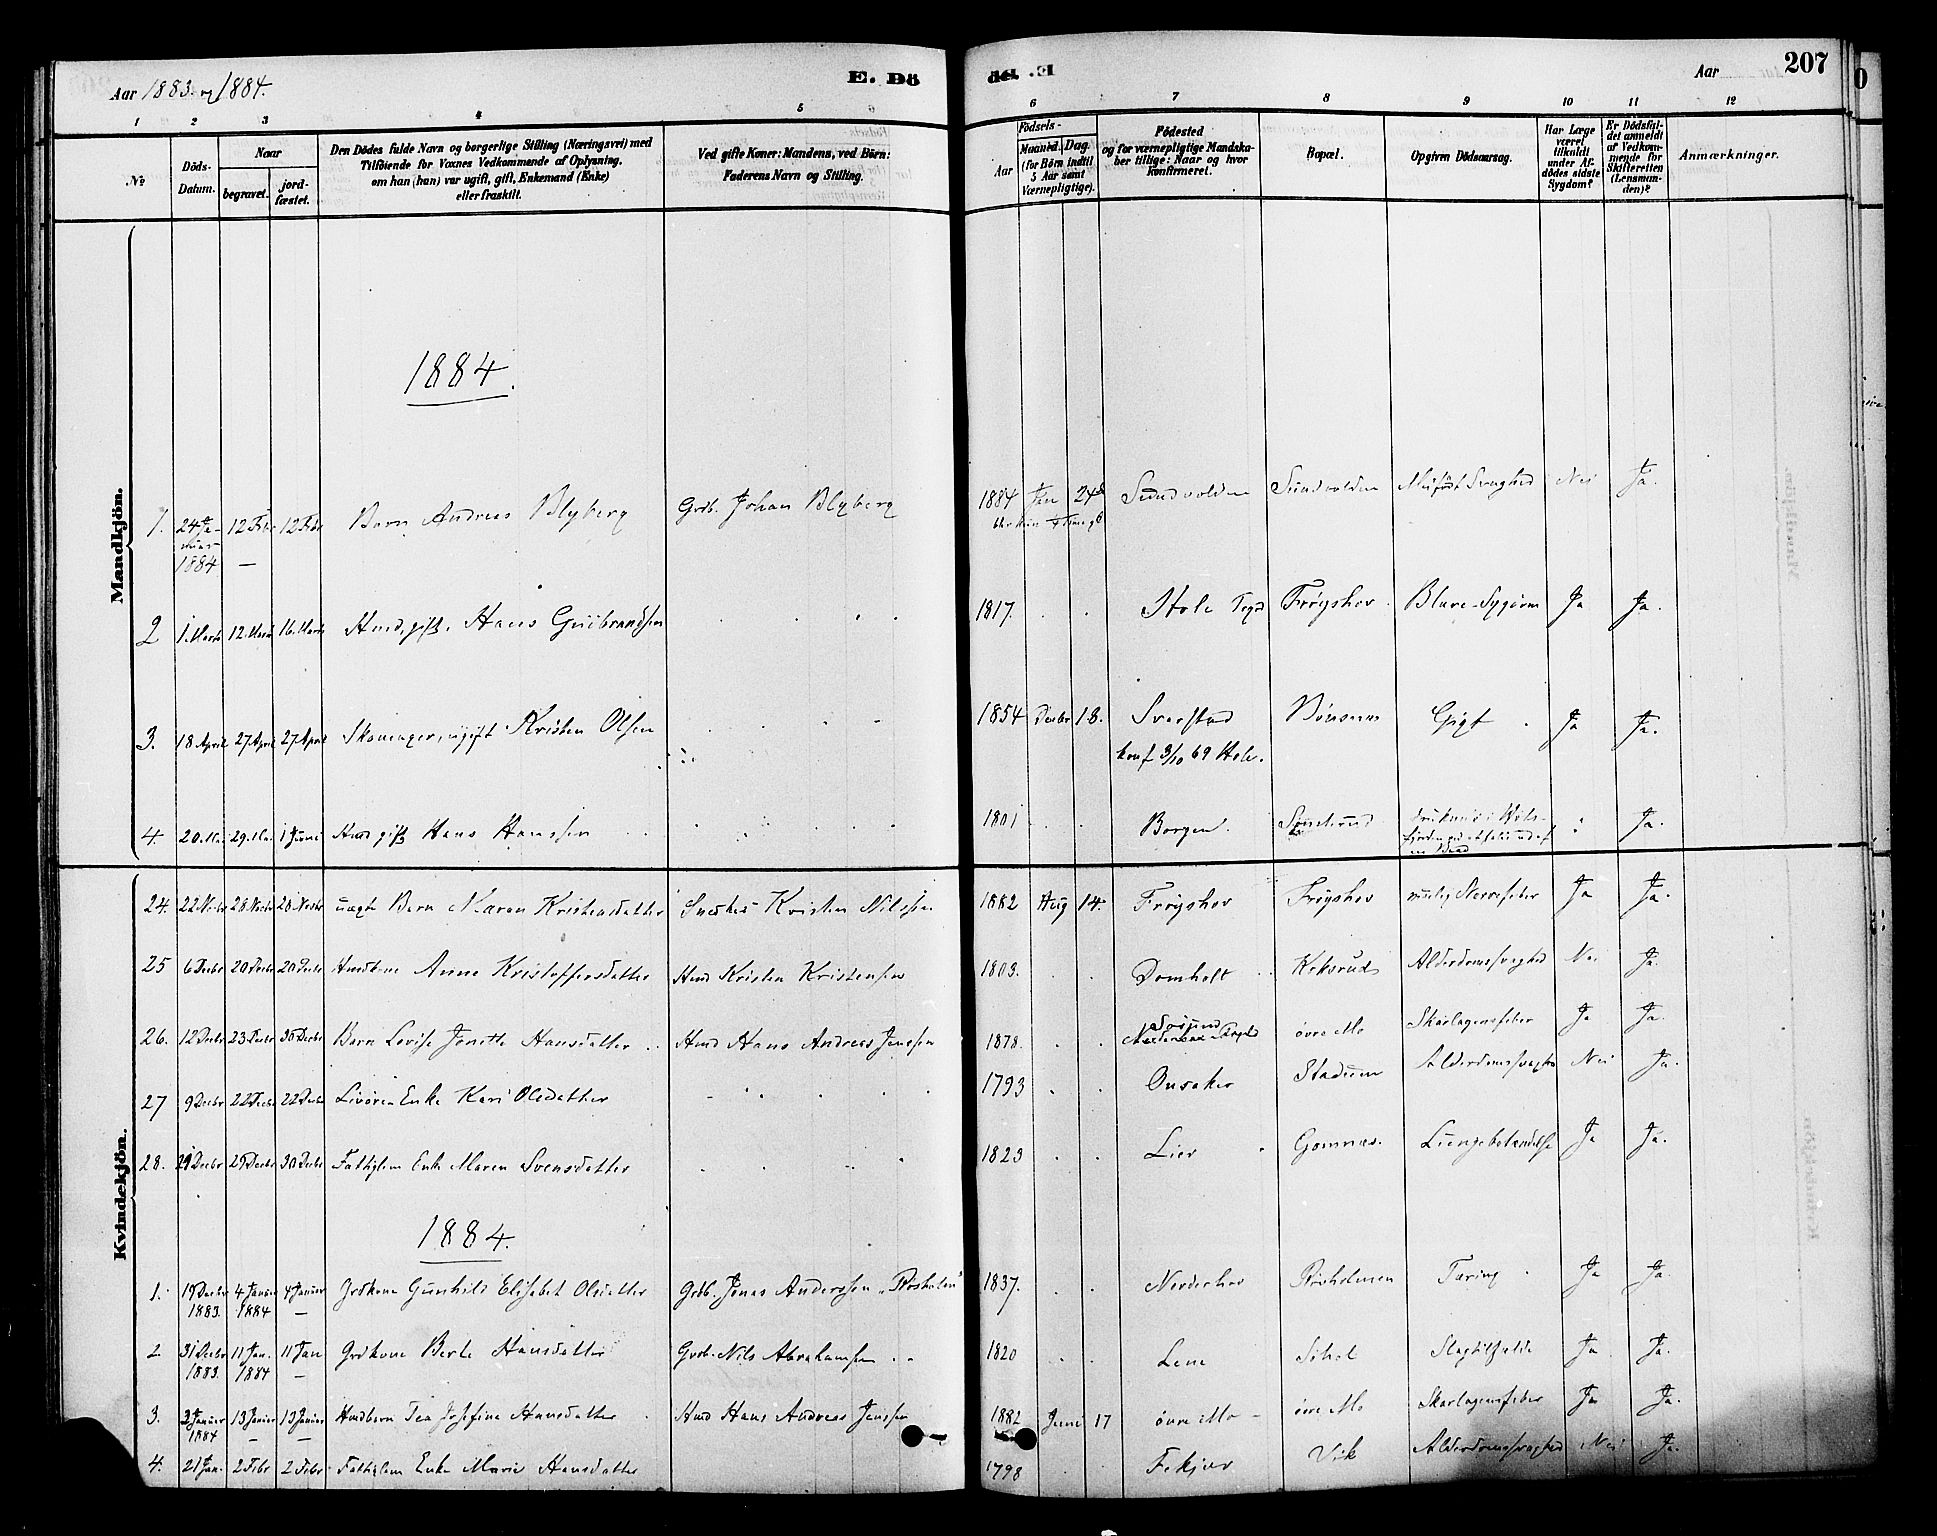 Aar 1883. og 1884.
E. Dö
de. E
Aar
207
1 2 3 4 5 6 7 8 9 10 11 12
No
Döds-Datum.
Naar
begravet.
jord-fæstet.
Den Dödes fulde Navn og borgerlige Stilling (Næringsvei) med
Tilföiende for Voxnes Vedkommende af Oplysning,
om han (hun) var ugift, gift, Enkemand (Enke)
eller fraskilt.
Ved gifte Koner: Mandens, ved Börn:
Faderens Navn og Stilling.
Födsels-
Aar
Maaned.
Dag.
(for Börn indtil
5 Aar samt
Værnepligtige).
Födested
og for værnepligtige Mandska-
ber tillige: Naar og hvor
konfirmeret.
Bopæl.
Opgiven Dödsaarsag.
Har Læge
været
tilkaldt
under Af-
dödes sidste
Sygdom?
Er Dödsfal-
det anmeldt
af Vedkom-
mende for
Skifteretten
(Lensman-
den)?
Anmærkninger.
Mandkjön.
1884.
1. 24 Ja-nuar 1884 12 Febr 12 Febr Barn Andreas Blyberg Grdb. Johan Blyberg 1884 Jan 24 Sundvolden Sundvolden Medfødt Svaghed Nei Ja.
2 1. Marts 12. Marts 16. Marts Husd. gift. Hans Gulbrandsen 1817. Hole Frøyshov Ja Ja.
3. 18 April 27 April 27 April Skomager, ugift Kristen Olsen 1854 Decbr 18. Svarstad Bönsnes Gigt Ja Ja.
konf 3/10 69 Hole.
4. 20. Mai 29. Mai 1 Juni gift Hans Hansen 1801 Borgen. Ja.
Kvindekjön.
24. 28 Novbr uægte Barn Maren Kristensdatter Kristen Nilsen 1882 Aug 14. Frøyshov Frøyshov Nervefeber Ja Ja.
25 6 Decbr 20 Decbr 20 Decbr Husdkone Anne Kristoffersdatter Husd Kristen Kristensen 1803. Domholt Koksrud Alderdomssvaghed Nei Ja.
26. 12 Decbr 23 Decbr 30 Decbr Barn Lovise Jonette Hansdatter Husd Hans Andreas Jensen 1878. övre Mo Skarlagensfeber Ja Ja.
27 9 Decbr 22 Decbr 22 Decbr Enke Kari Olsdatter 1793 Onsaker Stadum Alderdomssvaghed Nei Ja.
28. 29 Decbr 30 Decbr Fattiglem Enke Maren Svensdatter 1823 Lier Gomnæs. Lungebetændelse Ja Ja.
1884.
1. 19 Decbr 1883. 4 Januar 1884 4 Januar Grdkone Gunhild Elisabet Olsdatter Grdb. Jonas Anderssen 1837. Norderhov Tæring Ja Ja.
2. 31 Decbr 1883. 11 Jan. 1884 11 Jan Grdkone Berte Hansdatter Grdb. Nils Abrahamsen 1820 Sohol Slagtilfælde Ja Ja.
3. 2 Januar 1884 13 Januar 13 Januar Husdbarn Tea Josefine Hansdatter Husd Hans Andreas Jensen 1882 Juni 17 övre Mo övre Mo Skarlagensfeber Ja Ja.
4. 21 Jan. 2 Febr 2 Febr Fattiglem Enke Marie Hansdatter 1798 Fekjær Vik Alderdomssvaghed Nei Ja.